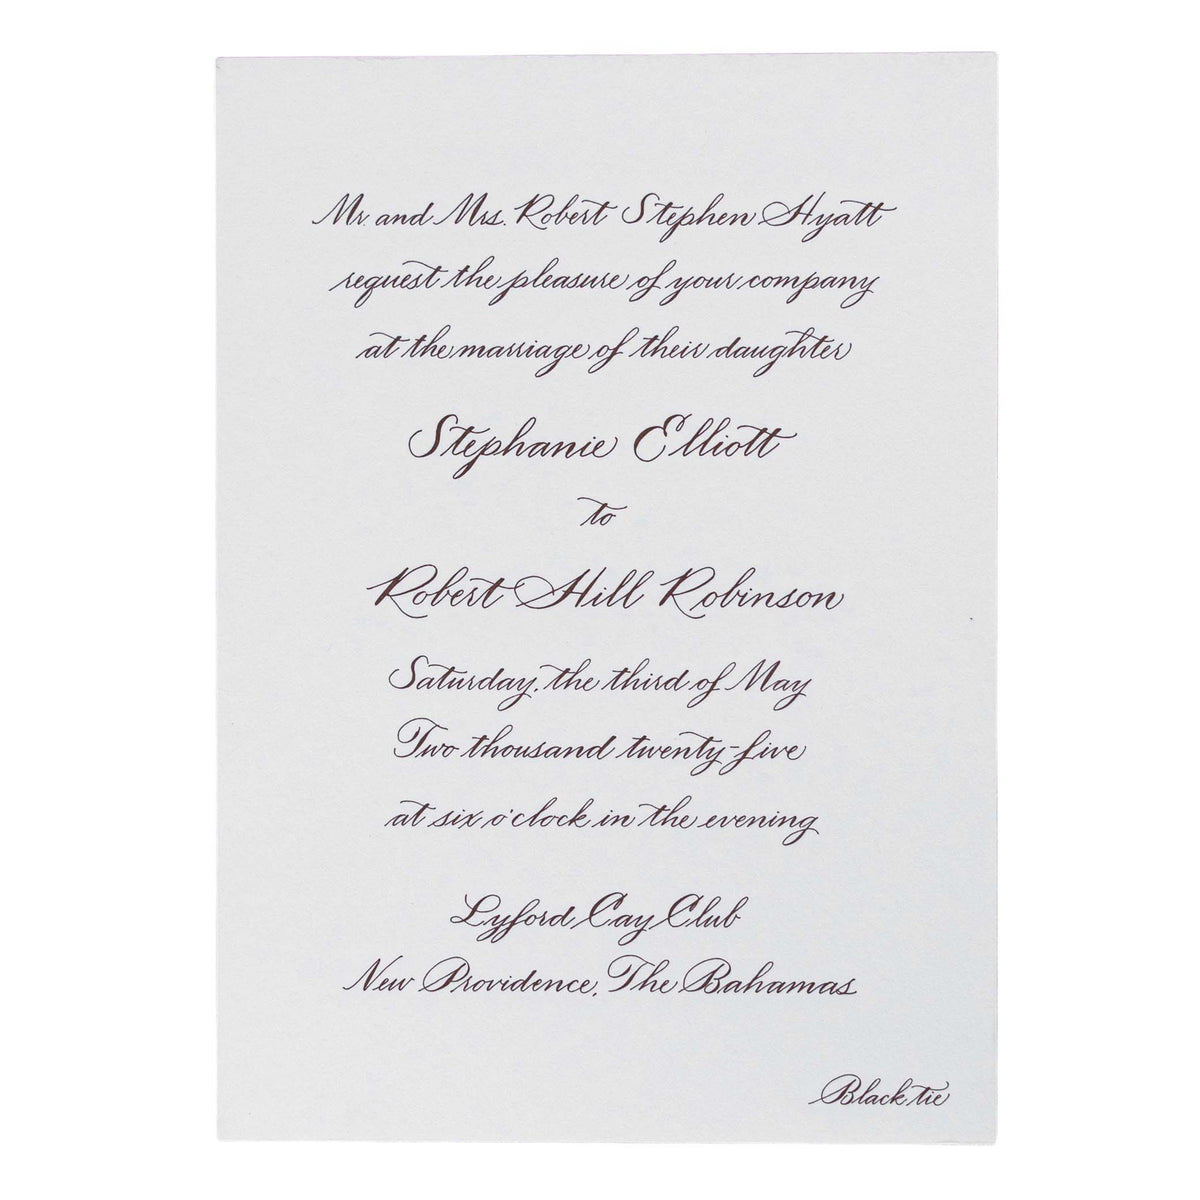 Mr. and Mrs. Robert Stephen Hyatt
request the pleasure of your company
at the marriage of their daughter
Stephanie Elliott
to
Robert Hill Robinson
Saturday, the third of May
Two thousand twenty-five
at six o'clock in the evening
Lyford Cay Club
New Providence, The Bahamas
Black tie